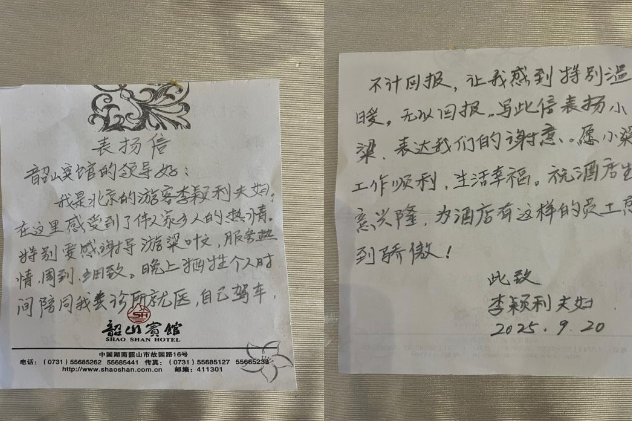 表扬信
韶山宾馆的领导好：
我是北京的游客李颖利夫妇，
在这里感受到了伟人家乡人的热情。
特别要感谢导游梁叶文，服务热
情、周到、细致。晚上牺牲个人时
间陪同我去诊所就医，自己驾车，
SH
韶山賓館
SHAO SHAN HOTEL
中国湖南韶山市故园路16号
电话：（0731）55685262 55685441 传真：（0731）55685127 55685234
http://www.shaoshan.com.cn 邮编：411301
不计回报，让我感到特别温
暖。无以回报，写此信表扬小
梁，表达我们的谢意。愿小梁
工作顺利，生活幸福。祝酒店生
意兴隆，为酒店有这样的员工感
到骄傲！
此致
李颖利夫妇
2025.9.20